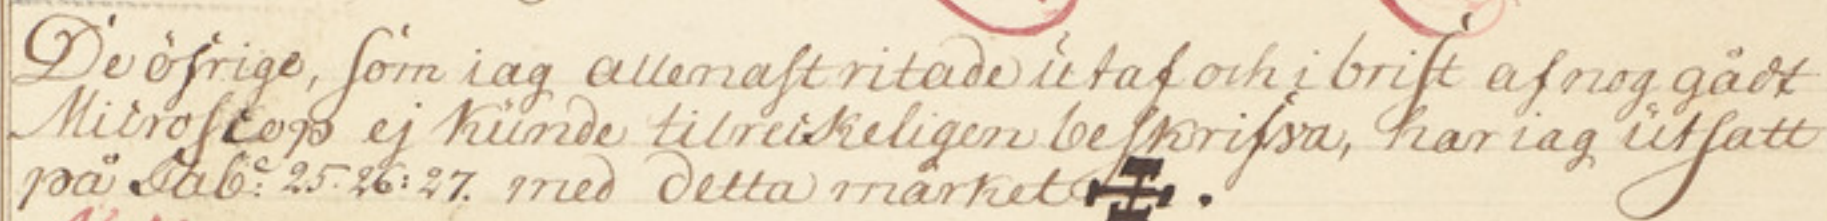 De öfrige, som iag allenast ritade utaf och i brist af nog gådt
Microscop ej kunde tilreckeligen beskrifva, har iag utsatt
på Tab: 25. 26: 27. med detta märket ✠.